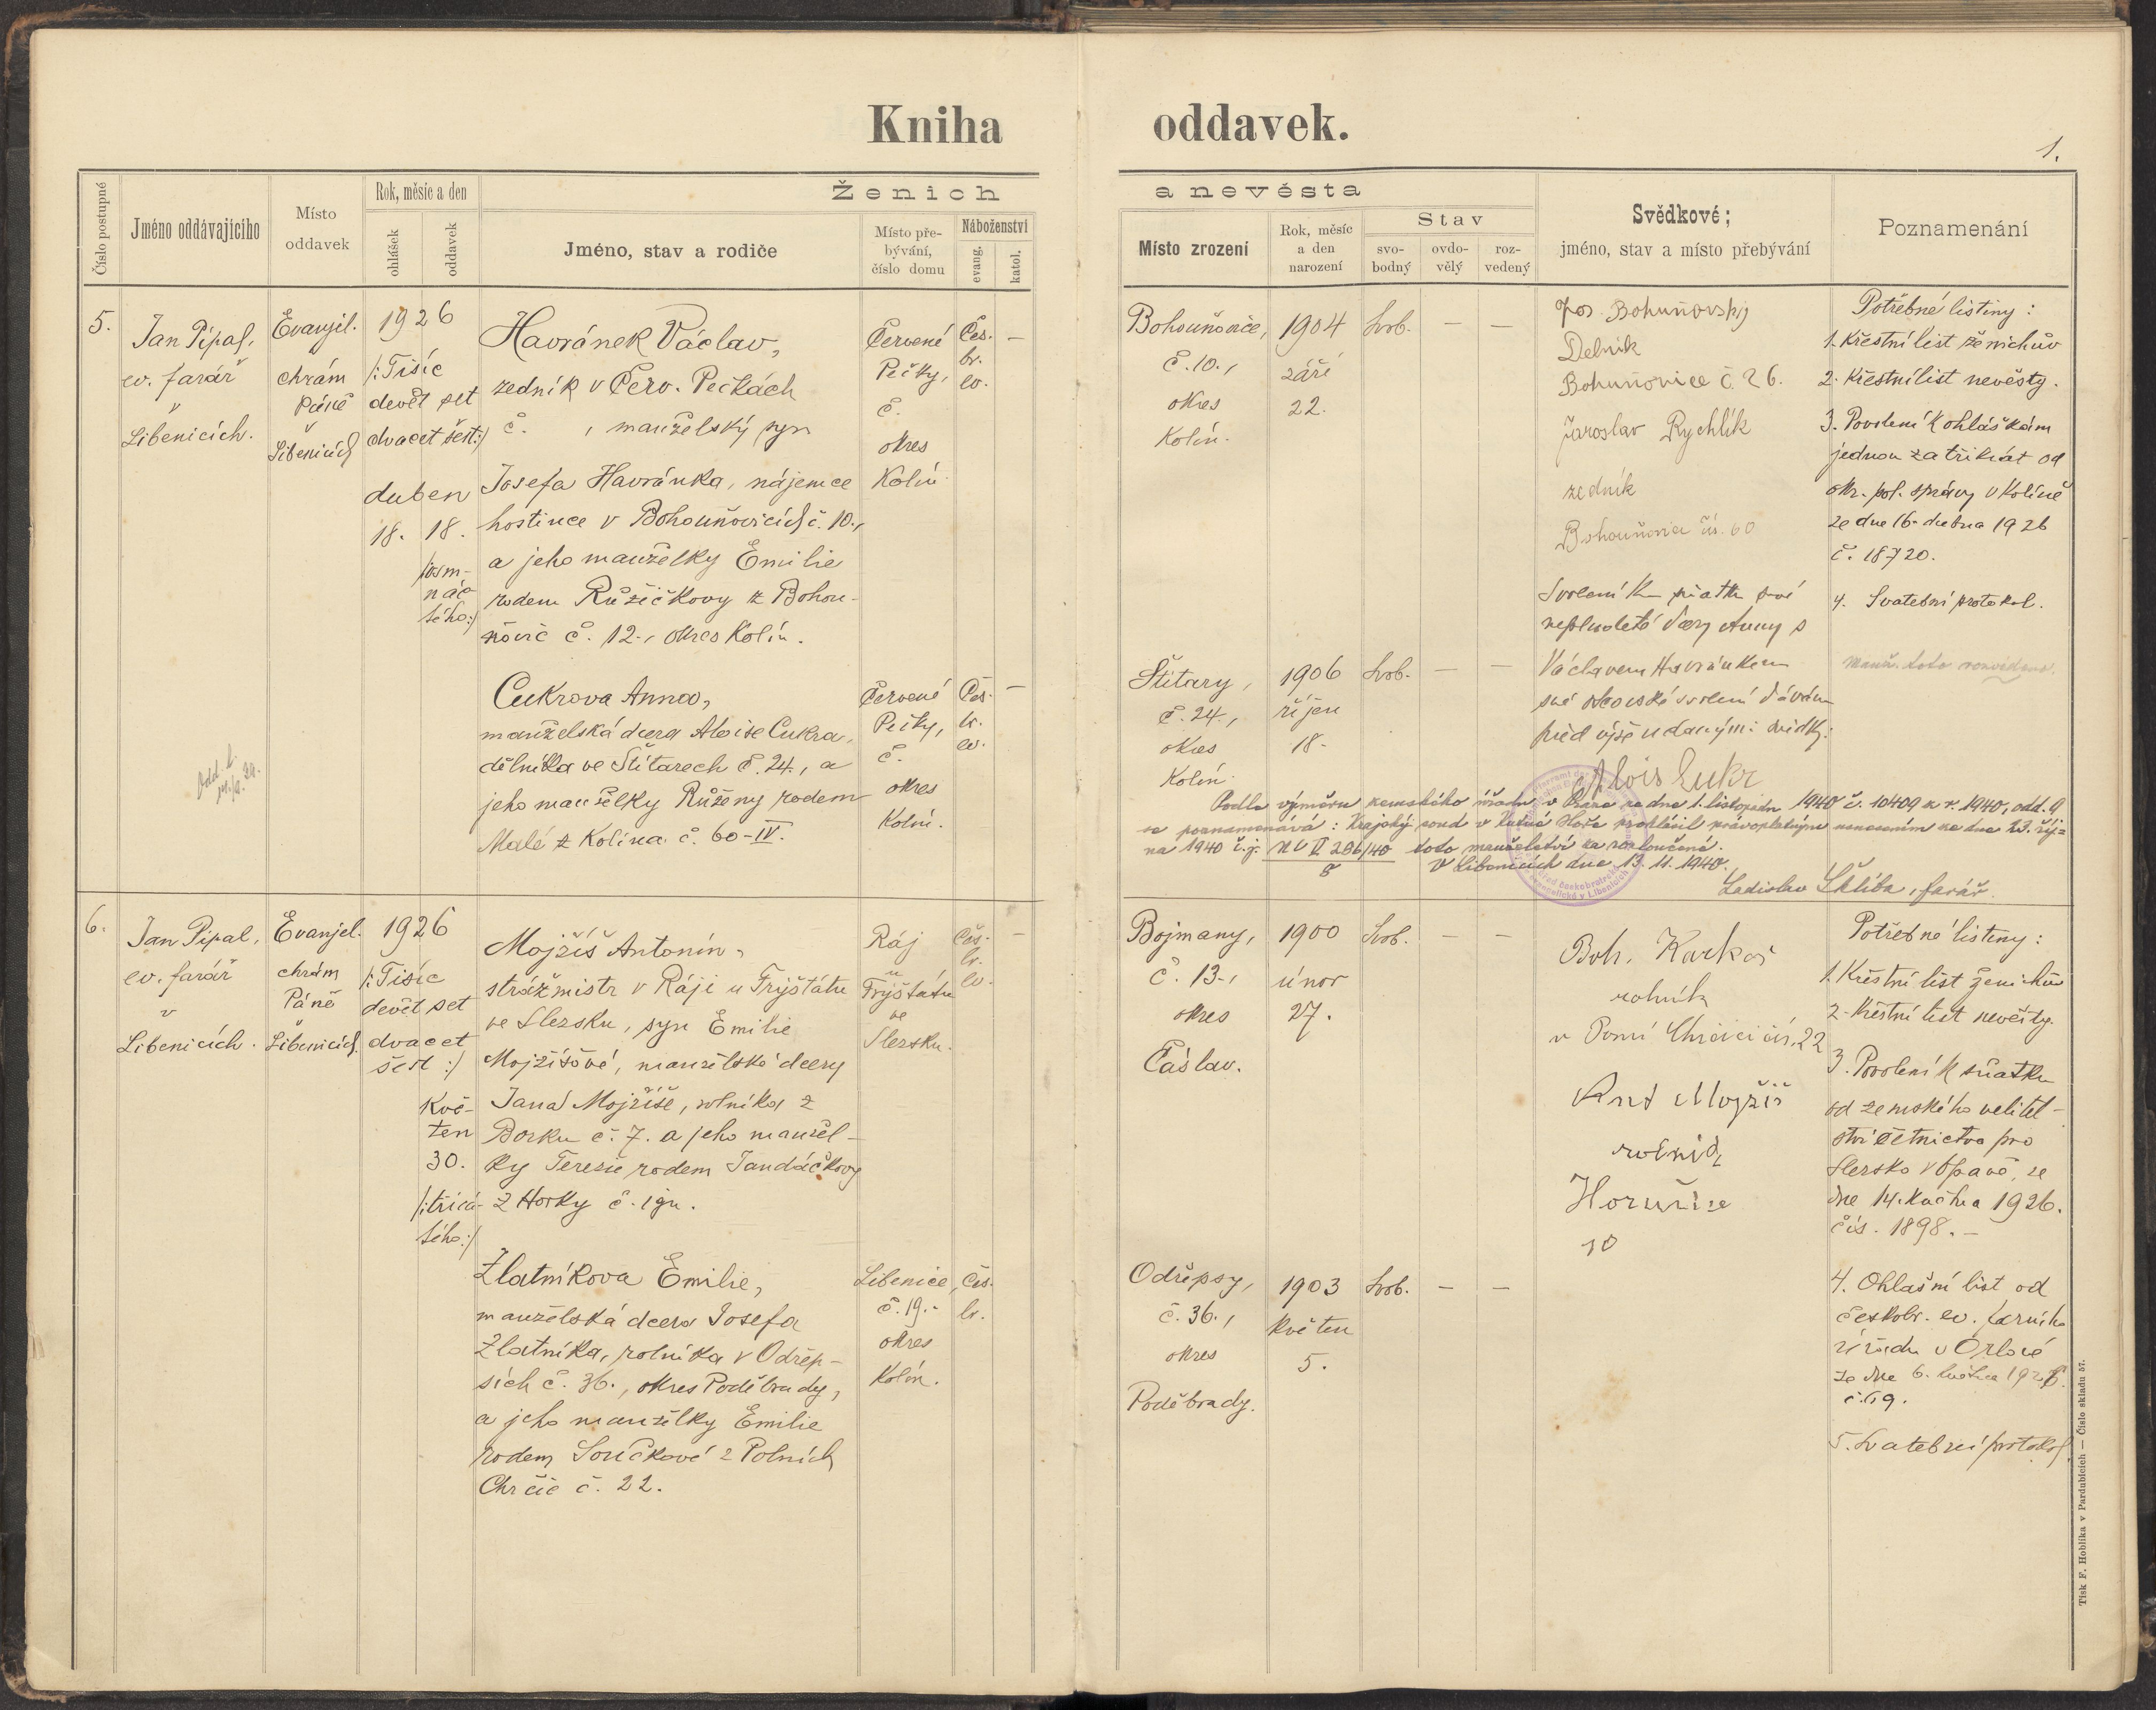 Kniha oddavek.
1.
Číslo postupné
Jméno oddávajícího
Místo oddavek
Rok, měsíc a den
ohlášek
oddavek
Ženich a nevěsta
Jméno, stav a rodiče
Místo pře-
bývání,
číslo domu
Náboženství
evang.
katol.
Místo zrození
Rok, měsíc
a den
narození
Stav
svo-
bodný
ovdo-
vělý
roz-
vedený
Svědkové;
jméno, stav a místo přebývání
Poznamenání
5.
Jan Pípal,
ev. farář
v
Libenicích.
Evanjel.
chrám
Páně
v
Libenicích
1926
/:Tisíc
devět set
dvacet šest:/
duben
18. 18.
/:osm-
nác-
tého:/
Havránek Václav,
zedník v Červ. Pečkách
č. , manželský syn
Josefa Havránka, nájemce
hostince v Bohouňovicích č. 10.,
a jeho manželky Emilie
rodem Růžičkovy z Bohou-
ňovic č. 12., okres Kolín.
Červené
Pečky,
č.
okres
Kolín.
Čes.
br.
ev.
–
Bohouňovice,
č. 10.,
okres
Kolín.
1904
září
22.
Svob. – –
Jos. Bohuňovský
Dělník
Bohuňovice č. 26.
Jaroslav Rychlík
zedník
Bohouňovice čís. 60
Svolení k sňatku své
nezpletilé dcery Anny s
Václavem Havránkem
své otcovské svolení dávám
před výše udanými svědky:
Alois Cukr
Potřebné listiny:
1. Křestní list ženichův
2. Křestní list nevěsty.
3. Povolení k ohláškám
jednou za třikrát od
okr. pol. správy v Kolíně
ze dne 16. dubna 1926
č. 18720.
4. Svatební protokol.
Manž. toto rozvedeno.
Cukrova Anna,
manželská dcera Aloise Cukra,
dělníka ve Štítarech č. 24., a
jeho manželky Růženy rodem
Malé z Kolína č. 60-IV.
Červené
Pečky,
č.
okres
Kolín.
Čes.
br.
ev.
–
Štítary,
č. 24.,
okres
Kolín.
1906
říjen
18.
Svob. – –
Podle výměru zemského úřadu v Praze ze dne 1. listopadu 1940 č. 10409 z r. 1940, odd. 9
se poznamenává: Krajský soud v Kutné Hoře prohlásil právoplatným usnesením ze dne 23. říj=
na 1940 č.j. Nc II 286/40 toto manželství za rozloučené.
8
V Libenicích dne 13. 11. 1940.
Ladislav Šklíba, farář.
6.
Jan Pípal,
ev. farář
v
Libenicích.
Evanjel.
chrám
Páně
v
Libenicích.
1926
/:Tisíc
devět set
dvacet
šest:/
Kvě-
ten
30.
/:třicá-
tého:/
Mojžíš Antonín,
strážmistr v Ráji u Fryštátu
ve Slezsku, syn Emilie
Mojžíšové, manželské dcery
Jana Mojžíše, rolníka z
Borku č. 7. a jeho manžel-
ky Terezie rodem Jandáčkovy
z Horky č. 1gu.
Ráj
u
Fryštátu
ve
Slezsku.
Čes.
br.
ev.
–
Bojmany,
č. 13.,
okres
Čáslav.
1900
únor
27.
Svob. – –
Boh. Karkoš
rolník
v Polní Chrčici čís. 22
Ant Mojžíš
rolník
Horušice
10
Potřebné listiny:
1. Křestní list ženichův
2. Křestní list nevěsty.
3. Povolení k sňatku
od zemského velitel-
ství četnictva pro
Slezsko v Opavě, ze
dne 14. května 1926.
čís. 1898. –
4. Ohlašní list od
českobr. ev. farního
úřadu v Orlové
ze dne 6. května 1926.
č. 69.
5. Svatební protokol.
Zlatníkova Emilie,
manželská dcera Josefa
Zlatníka, rolníka v Odřep-
sích č. 36., okres Poděbrady,
a jeho manželky Emilie
rodem Součkové z Polních
Chrčic č. 22.
Libenice,
č. 19.
okres
Kolín.
Čes.
br.
Odřepsy,
č. 36.,
okres
Poděbrady.
1903
květen
5.
Svob. – –
Tisk F. Hoblíka v Pardubicích — Číslo skladu 57.